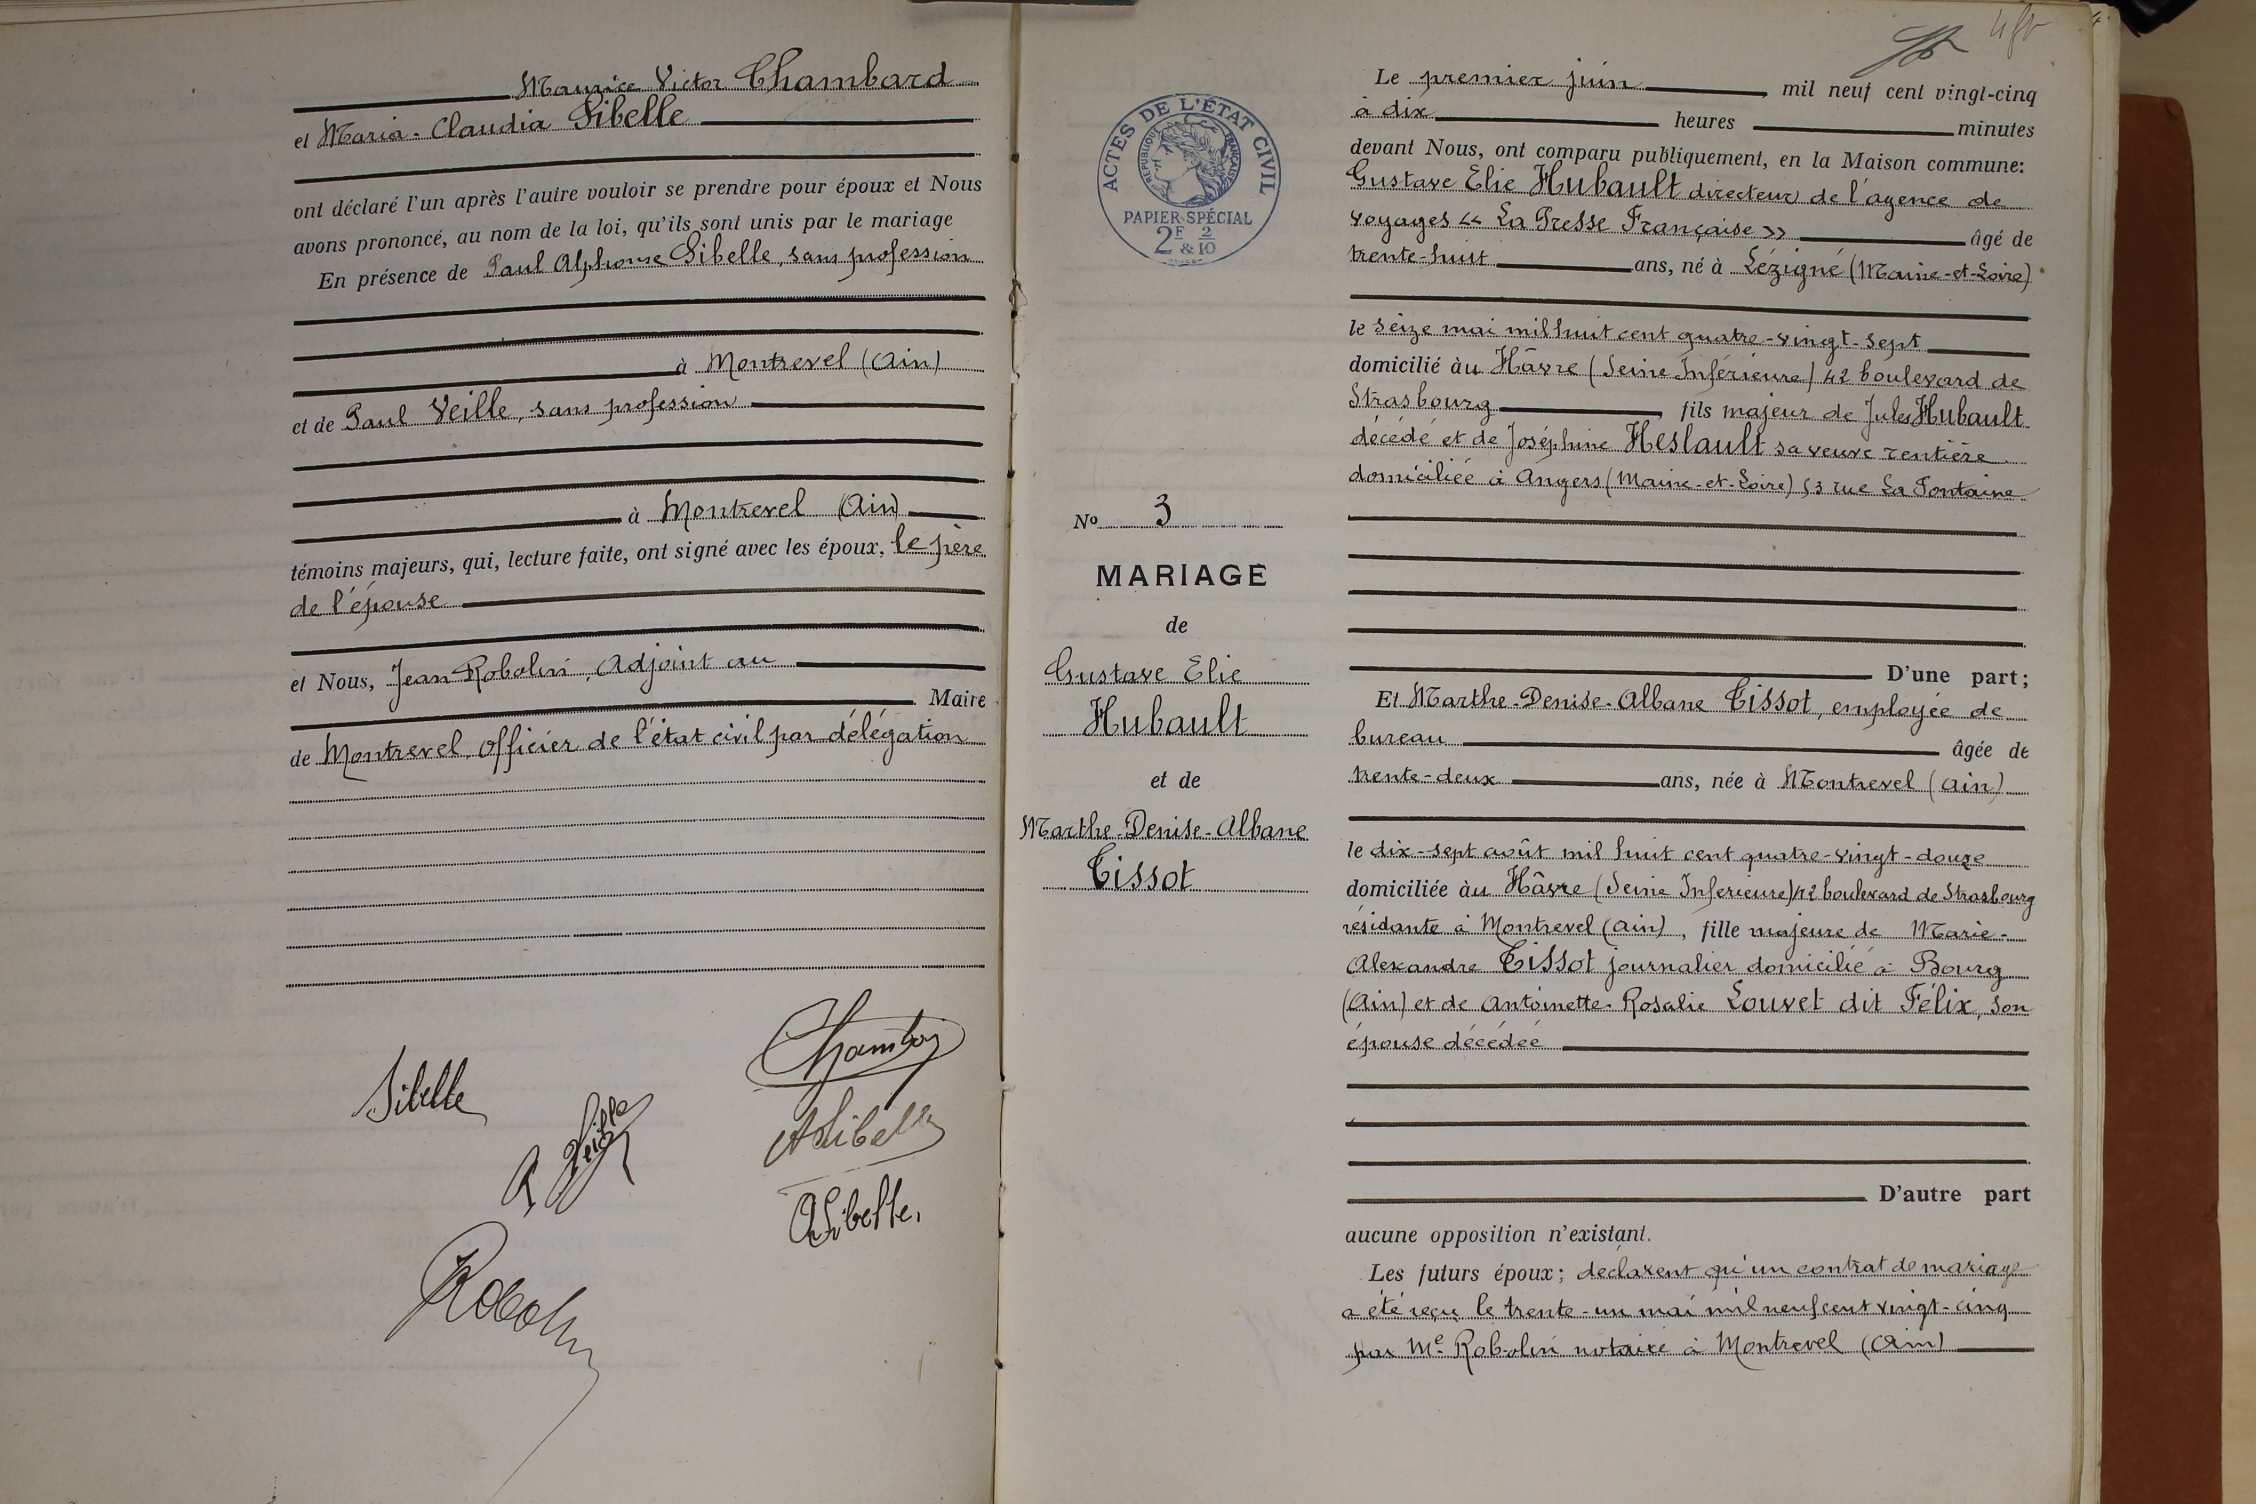 Maurice Victor Chambard
et Maria-Claudia Sibelle
ont déclaré l'un après l'autre vouloir se prendre pour époux et Nous
avons prononcé, au nom de la loi, qu'ils sont unis par le mariage
En présence de Paul Alphonse Sibelle, sans profession
à Montrevel (Ain)
et de Paul Veille, sans profession
à Montrevel (Ain)
témoins majeurs, qui, lecture faite, ont signé avec les époux, le père
de l'épouse
et Nous, Jean Robolin, Adjoint au
Maire
de Montrevel, officier de l'état civil par délégation
Sibelle
ASibelle
ASibelle.
Robolin
ACTES DE L'ÉTAT CIVIL
RÉPUBLIQUE FRANÇAISE
PAPIER SPÉCIAL
2F & 2/10
No 3
MARIAGE
de
Gustave Elie
Hubault
et de
Marthe-Denise-Albane
Tissot
Le premier juin mil neuf cent vingt-cinq
à dix heures minutes
devant Nous, ont comparu publiquement, en la Maison commune:
Gustave Elie Hubault directeur de l'agence de
voyages « La Presse Française » âgé de
trente-huit ans, né à Lezigné (Maine-et-Loire)
le seize mai mil huit cent quatre-vingt-sept
domicilié àu Hâvre (Seine Inférieure) 42 boulevard de
Strasbourg fils majeur de Jules Hubault
décédé et de Joséphine Heslault sa veuve rentière
domiciliée à Angers (Maine-et-Loire) 53 rue La Fontaine
D'une part;
Et Marthe-Denise-Albane Tissot, employée de
bureau âgée de
trente-deux ans, née à Montrevel (Ain)
le dix-sept août mil huit cent quatre-vingt-douze
domiciliée àu Hâvre (Seine Inférieure) 42 boulevard de Strasbourg
résidante à Montrevel (Ain), fille majeure de Marie-
Alexandre Tissot journalier domicilié à Bourg
(Ain) et de Antoinette-Rosalie Louvet dit Félix, son
épouse décédée
D'autre part
aucune opposition n'existant.
Les futurs époux; déclarent qu'un contrat de mariage
a été reçu le trente-un mai mil neuf cent vingt-cinq
par Me Robolin notaire à Montrevel (Ain)